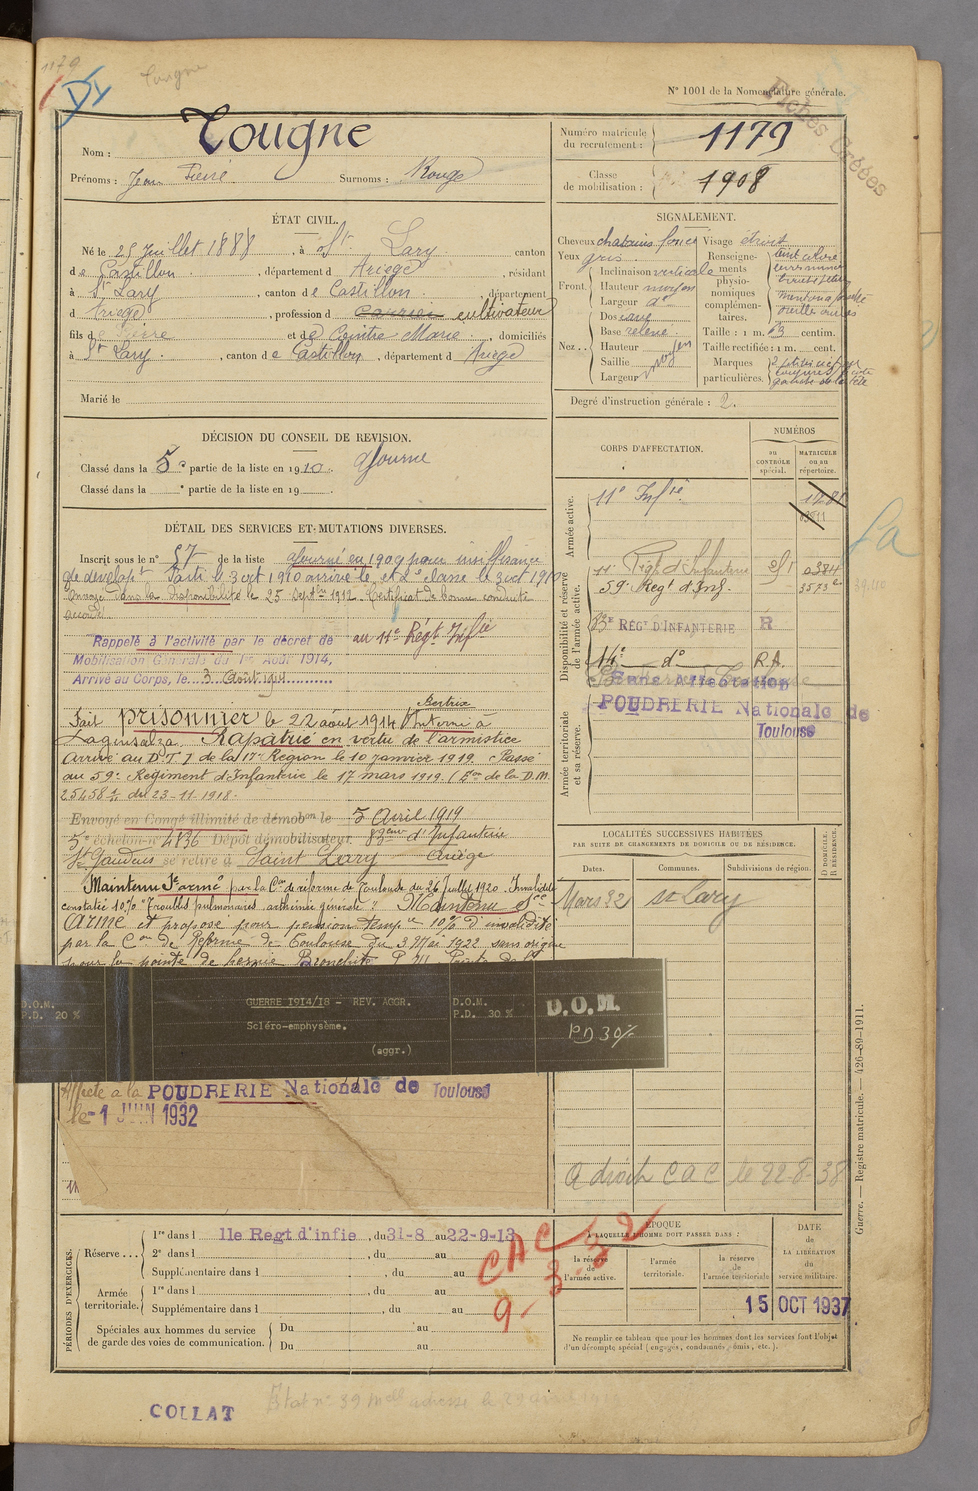 1179
Tougne
N° 1001 de la Nomenclature générale.
Fiches Créées
Nom : Tougne
Prénoms : Jean Pierre Surnoms : Rouge
Numéro matricule du recrutement : 1179
Classe de mobilisation : 1908
ÉTAT CIVIL.
Né le 25 Juillet 1888, à St Lary canton
de Castillon, département d Ariège, résidant
à St Lary, canton de Castillon, département
d Ariège, profession d cultivateur
fils de Pierre et de Cointre Marie, domiciliés
à St Lary, canton de Castillon, département d Ariège
Marié le
SIGNALEMENT.
Cheveux chatains foncé Visage étroit
Yeux gris
Front. Inclinaison verticale
Hauteur moyen
Largeur do
Nez.. Dos cave
Base relevé
Hauteur moyen
Saillie
Largeur
Renseignements physionomiques complémentaires.
Taille : 1 m. 63 centim.
Taille rectifiée : 1 m. cent.
Marques particulières.
gauche de la tête
Degré d'instruction générale : 2.
DÉCISION DU CONSEIL DE REVISION.
Classé dans la 5e partie de la liste en 1910. Ajourné
Classé dans la e partie de la liste en 19
DÉTAIL DES SERVICES ET MUTATIONS DIVERSES.
Inscrit sous le n° 57 de la liste Ajourné en 1909 pour insuffisance
de developt Parti le 3 oct 1910 arrivé le et 2e classe le 3 oct 1910
Envoyé dans la disponibilité le 25 Septbre 1912. Certificat de bonne conduite
accordé
Rappelé à l'activité par le décret de
Mobilisation Générale du 1er Août 1914,
Arrivé au Corps, le 3 Août 1914
au 11e Régt Infie
Fait prisonnier le 22 août 1914 Bertrix Interné à
Langensalza. Rapatrié en vertu de l'armistice
Arrivé au D.T.I de la 17e Région le 10 janvier 1919. Passé
au 59e Régiment d'Infanterie le 17 mars 1919
25458 du 23-11-1918.
Envoyé en Congé illimité de démobon le 5 Avril 1919
5e échelon n° 4836 Dépôt démobilisateur 83eme d'Infanterie
St Gaudens se retire à Saint Lary Ariège
Maintenu Sce armé par la Con de réforme de Toulouse du 26 Juillet 1920. Invalidité
constatée 10% "Troubles pulmonaires asthénie générale" Maintenu Sce
Armé et proposé pour pension tempre 10% d'invalidité
par la Con de Réforme de Toulouse du 3 Mai 1922 sans origine
pour la pointe de hernie Bronchite
D.O.M.
P.D. 20 %
GUERRE 1914/18 - REV. AGGR.
Scléro-emphysème.
(aggr.)
D.O.M.
P.D. 30 %
D.O.M.
PD 30%
Affecté à la POUDRERIE Nationale de Toulouse
le -1 JUIN 1932
CORPS D'AFFECTATION.
NUMÉROS
au CONTRÔLE spécial.
MATRICULE ou au répertoire.
Armée active.
11e Infie
Disponibilité et réserve de l'armée active.
11e Régt d'Infanterie
59e Regt d'Inf.
83E RÉGT D'INFANTERIE R
14e do R.A.
Sans Affectation
POUDRERIE Nationale de
Toulouse
Armée territoriale et sa réserve.
LOCALITÉS SUCCESSIVES HABITÉES
PAR SUITE DE CHANGEMENTS DE DOMICILE OU DE RÉSIDENCE.
Dates. Communes. Subdivisions de région. D DOMICILE. R RÉSIDENCE.
Mars 32 St Lary
a droit CAC le 22-8-38
Guerre. — Registre matricule. — 426-89-1911.
PÉRIODES D'EXERCICES.
Réserve...
1re dans l 11e Regt d'infie, du 31-8 au 22-9-13
2e dans l , du au
Supplémentaire dans l , du au
Armée territoriale.
1re dans l , du au
Supplémentaire dans l , du au
Spéciales aux hommes du service de garde des voies de communication.
Du au
Du au
CAC
9-3-32
ÉPOQUE
A LAQUELLE L'HOMME DOIT PASSER DANS :
la réserve de l'armée active.
l'armée territoriale.
la réserve de l'armée territoriale
DATE DE LA LIBÉRATION du service militaire.
15 OCT 1937
Ne remplir ce tableau que pour les hommes dont les services font l'objet
d'un décompte spécial (engagés, condamnés, omis, etc.).
COLLAT